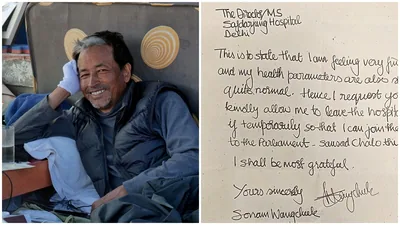 The Director/MS
Safdarjung Hospital
Delhi
This is to state that I am feeling very
and my health parameters are also
quite normal. Hence I request
kindly allow me to leave the
if temporarily so that I can join the
to the Parliament - Sansad Chalo
I shall be most grateful.
Yours sincerely
Sonam Wangchuk